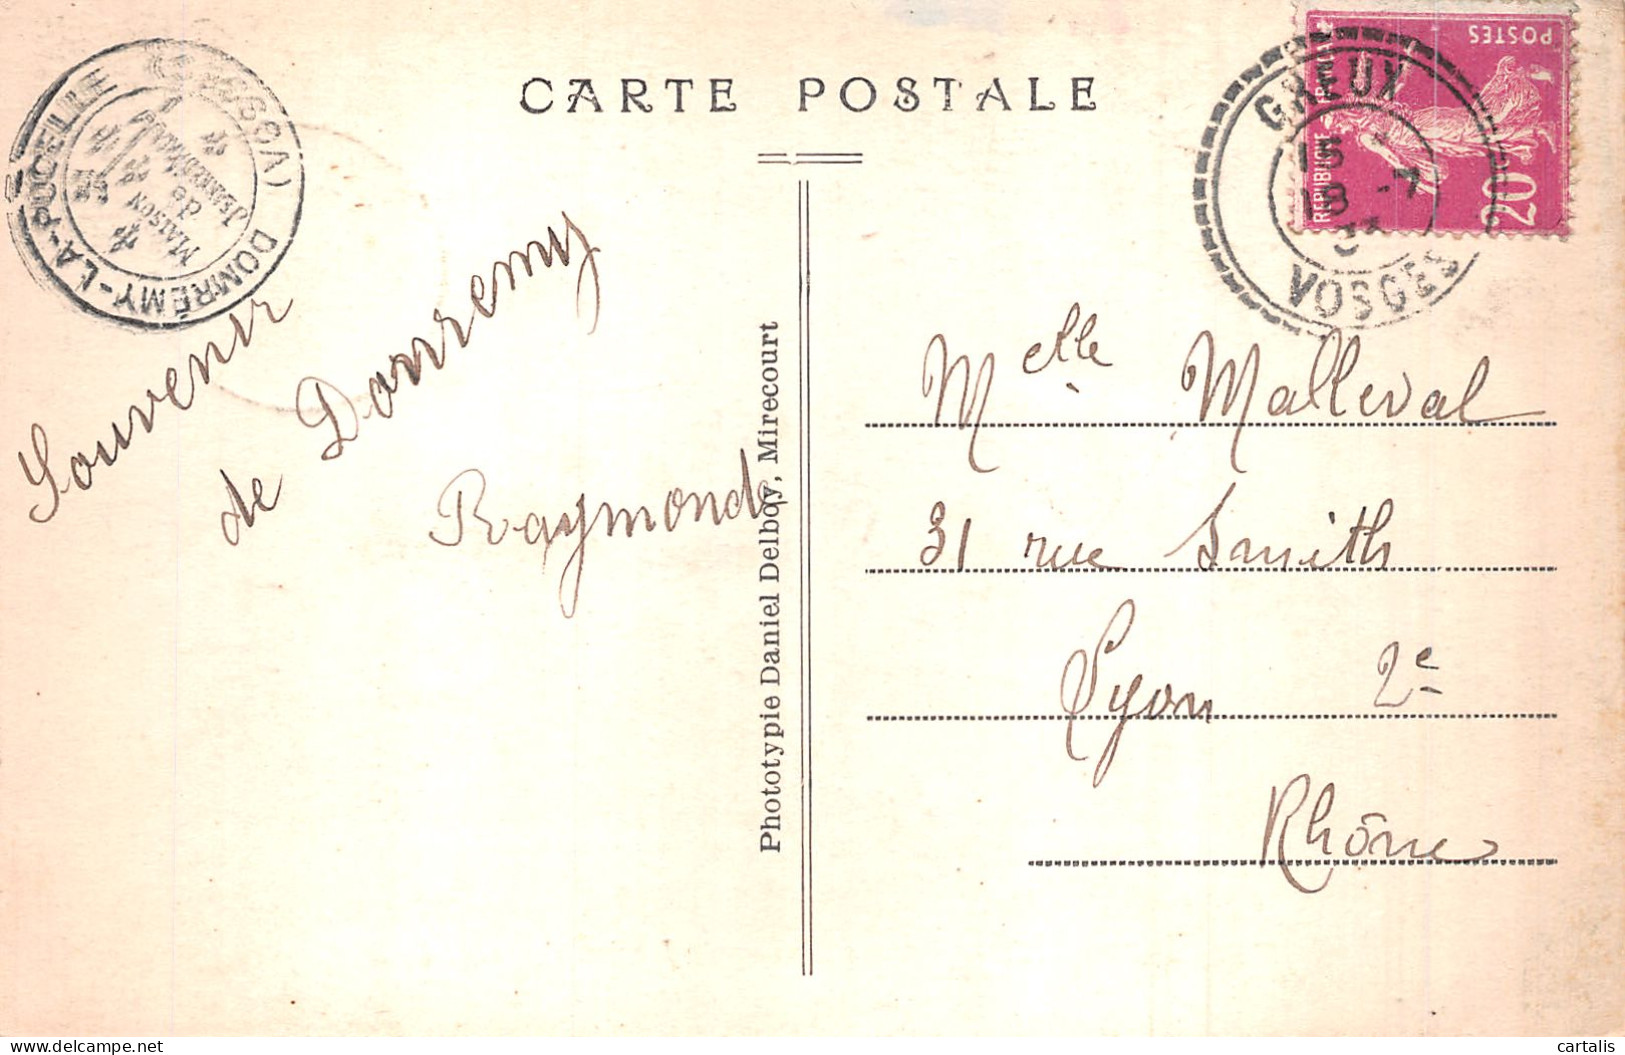 CARTE POSTALE
DOMRÉMY-LA-PUCELLE (VOSGES)
Maison
de
Jeanne d'Arc
GREUX
15
18 -7
VOSGES
POSTES
REPUBLIQUE FRANÇAISE
20
Souvenir
de Domremy
Raymonde
Phototypie Daniel Delboy, Mirecourt
Melle Malleval
31 rue Smith
Lyon 2e
Rhône
cartalis
delcampe.net